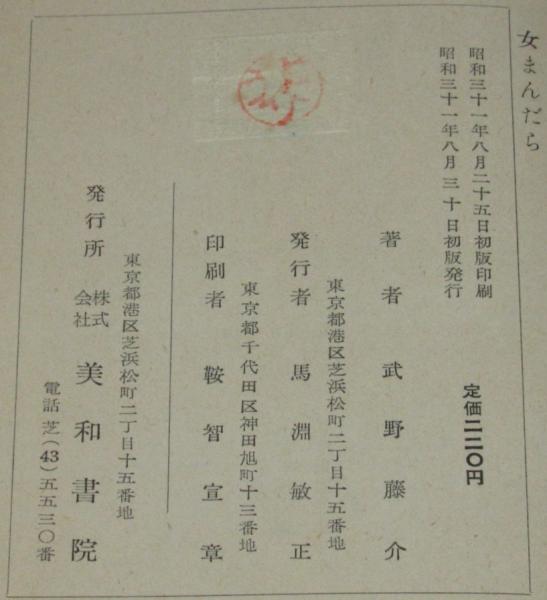 女まんだら
昭和三十一年八月二十五日初版印刷
昭和三十一年八月三十日初版発行
定価二二〇円
著者 武野藤介
東京都港区芝浜松町二丁目十五番地
発行者 馬淵敏正
東京都千代田区神田旭町十三番地
印刷者 鞍智宣章
東京都港区芝浜松町二丁目十五番地
発行所 株式会社 美和書院
電話芝(43)五五三〇番